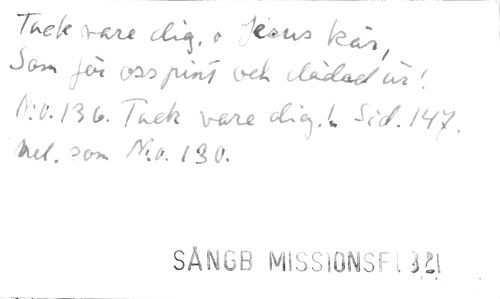 Tack vare dig, o Jesus kär,
Som för oss pint och dödad är!
N:o. 136. Tack vare dig! Sid. 147.
Mel. som N:o. 130.
SÅNGB MISSIONSF